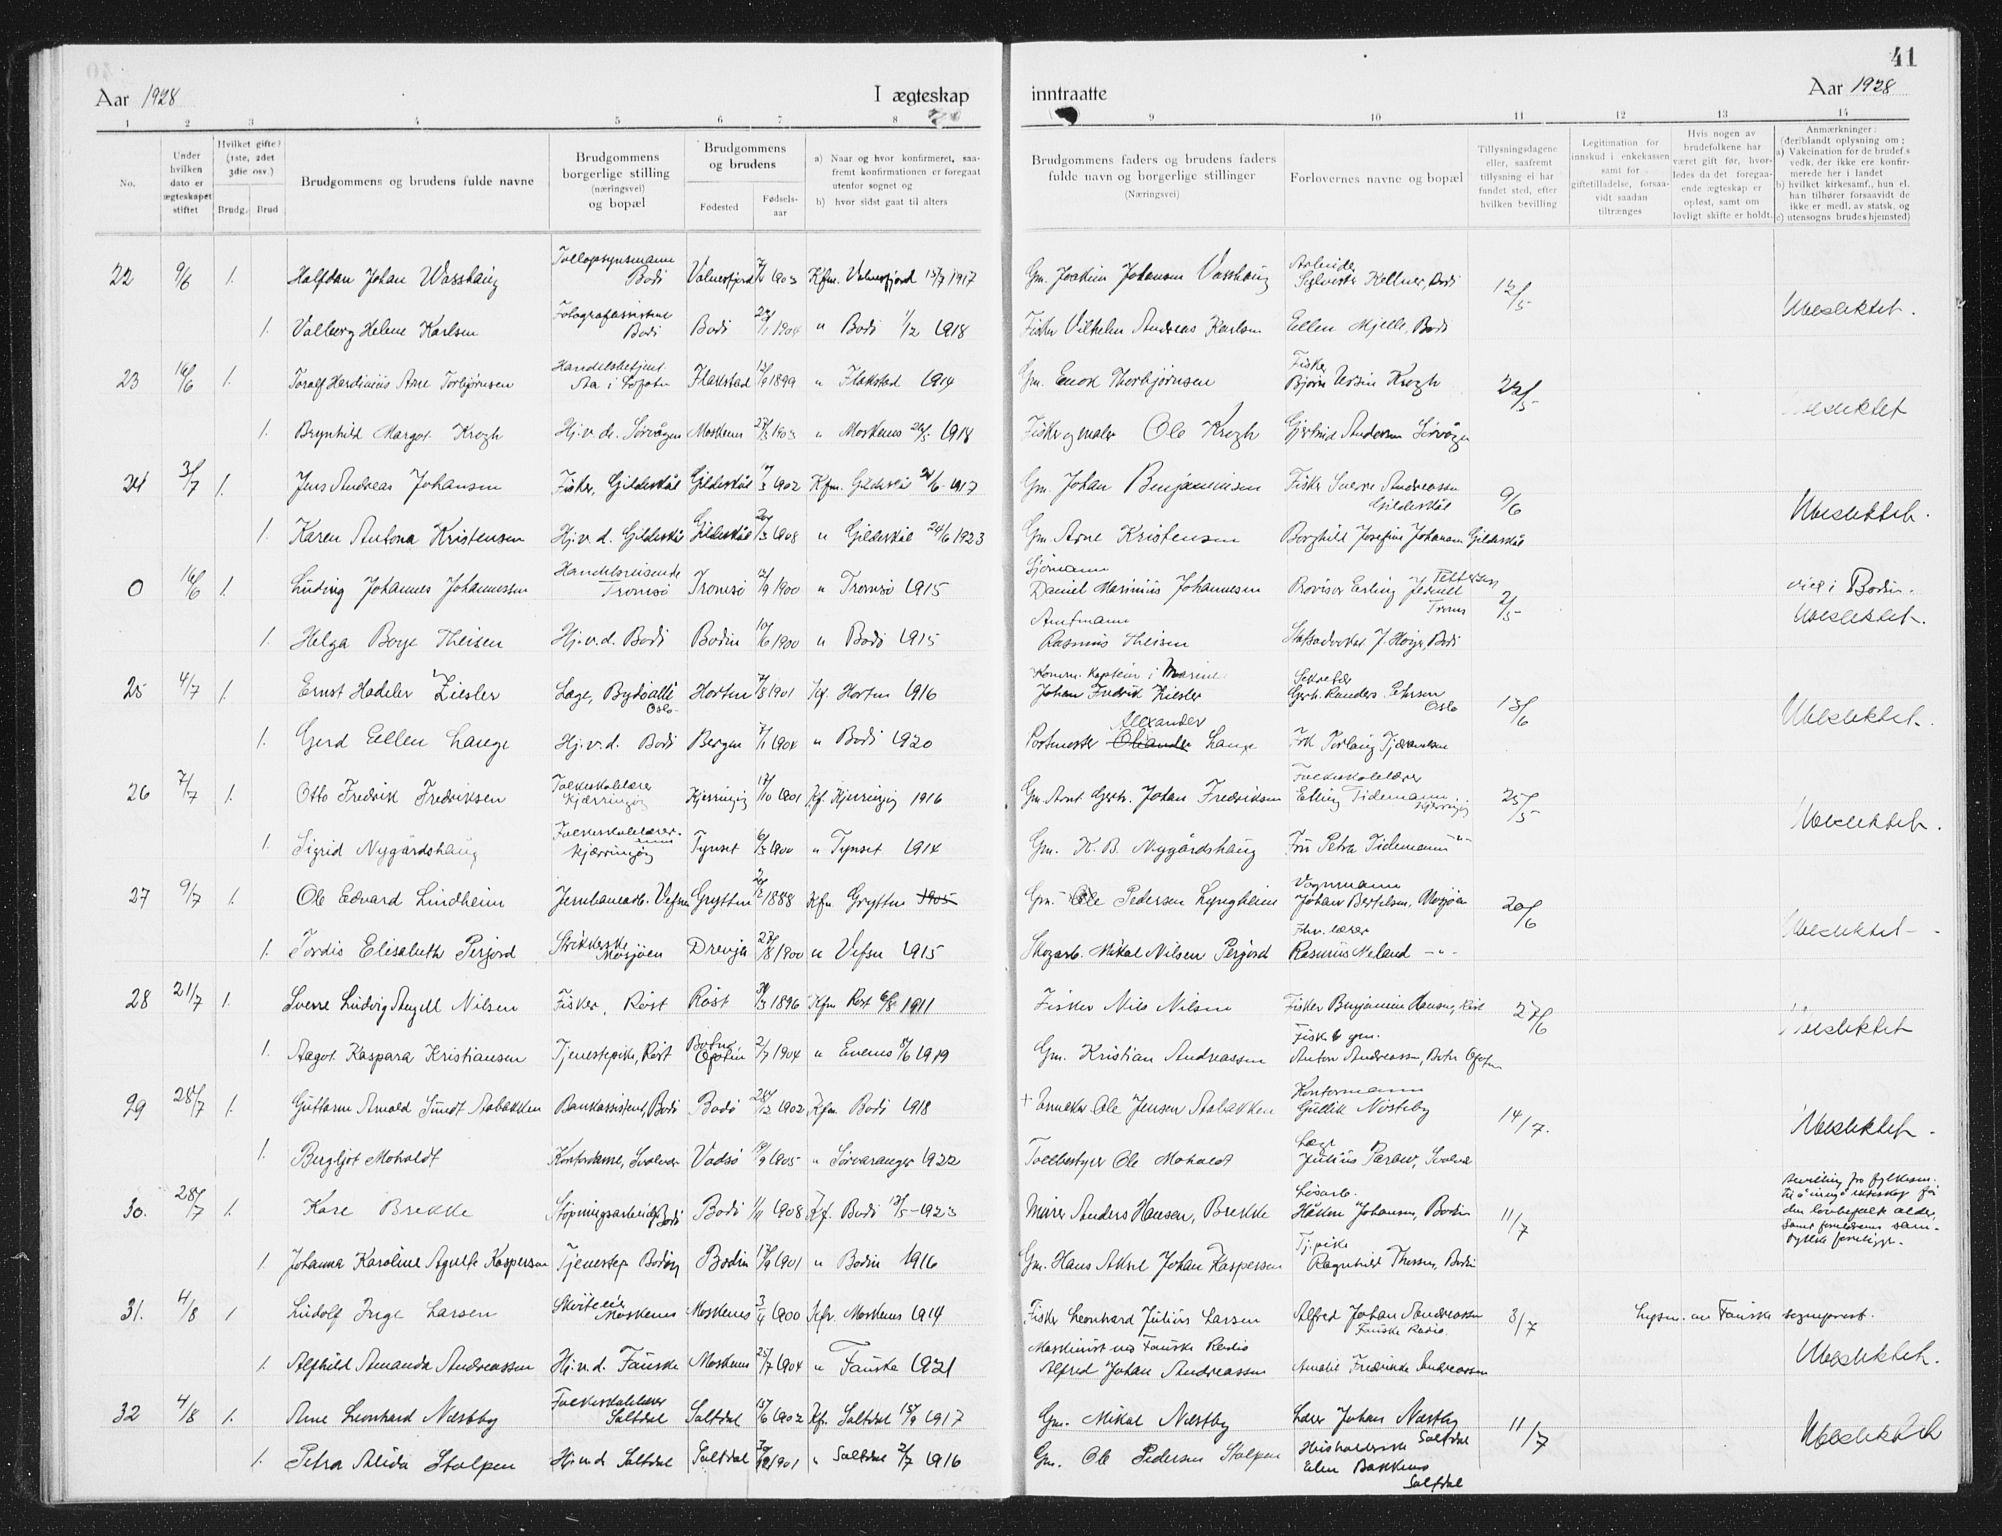 41
Aar 1928 I ægteskap inntraatte Aar 1928
1 2 3 4 5 6 7 8 9 10 11 12 13 14
No.
Under hvilken dato er ægteskapet stiftet
Hvilket gifte? (1ste, 2det 3die osv.)
Brudg. Brud
Brudgommens og brudens fulde navne
Brudgommens borgerlige stilling (næringsvei) og bopæl
Brudgommens og brudens
Fødested Fødsels-aar
a) Naar og hvor konfirmeret, saa-fremt konfirmationen er foregaat utenfor sognet og
b) hvor sidst gaat til alters
Brudgommens faders og brudens faders fulde navn og borgerlige stillinger
(Næringsvei)
Forlovernes navne og bopæl
Tillysningsdagene eller, saafremt tillysning ei har fundet sted, efter hvilken bevilling
Legitimation for innskud i enkekassen samt for giftetilladelse, forsaa-vidt saadan tiltrænges
Hvis nogen av brudefolkene har været gift før, hvor-ledes da det foregaa-ende ægteskap er opløst, samt om lovligt skifte er holdt.
Anmærkninger: (deriblandt oplysning om:
a) Vakcination for de brudef.s vedk. der ikke ere konfir-merede her i landet
b) hvilket kirkesamf., hun el. han tilhører forsaavidt de ikke er medl. av statsk. og
c) utensogns brudes hjemsted)
22 9/6 1. Halfdan Johan Wasshaug Tollopsynsmann Bodø Valnesfjord 1903 Kfm. Valnesfjord 15/7 1917 Gm. Joakim Johansen Vasshaug Arbeider Sylvester Kellner, Bodø 12/5
1. Valborg Helene Karlsen Fotografassistent Bodø Bodø 1904 " Bodø 1/2 1918 Fisker Vilhelm Andreas Karlsen Ellen Mjelle, Bodø Ubeslektet.
23 16/6 1. Toralf Hardinius Arne Torbjørnsen Handelsbetjent Aa i Lofoten Flakstad 1899 " Flakstad 1914 Gm. Enok Thorbjørnsen Fisker Bjørn Ursin Krogh 22/5
1. Brynhild Margot Krogh Hj.v.d. Sørvågen Moskenes 1903 " Moskenes 1918 Fisker og maler Ole Krogh Gjertrud Andersen Sørvågen Ubeslektet
24 3/7 1. Jens Andreas Johansen Fisker, Gildeskål Gildeskål 1902 Kfm. Gildeskål 1917 Gm. Johan Benjaminsen Fisker Sverre Andreassen Gildeskål 9/6
1. Karen Antona Kristensen Hj.v.d. Gildeskål Gildeskål 1908 " Gildeskål 24/6 1923 Gm. Arne Kristensen Borghild Josefine Johansen Gildeskål Ubeslektet.
0 16/6 1. Ludvig Johannes Johannessen Handelsreisende Tromsø Tromsø 12/9 1900 " Tromsø 1915 Sjømann Daniel Marinius Johannesen Provisor Erling Pettersen Troms 2/5 viet i Bodin.
1. Helga Borge Theisen Hj.v.d. Bodø Bodin 10/6 1900 " Bodø 1915 Amtmann Rasmus Theisen Statsadvokat J. Høyer, Bodø Ubeslektet.
25 4/7 1. Ernst Hadeler Ziesler Læge, Bygdøallé Oslo Horten 1901 Kf. Horten 1916 Komm. kaptein i Marinen Johan Fredrik Ziesler Sekretær Gerh. Randers Pehrson Oslo 13/6
1. Gerd Ellen Lange Hj.v.d. Bodø Bergen 1904 " Bodø 1920 Postmester Oleander Alexander Lange Frk Ubeslektet.
26 7/7 1. Otto Fredrik Fredriksen Folkeskolelærer Kjærringøy Kjerringøy 17/10 1901 Kf. Kjerringøy 1916 Gm. Arnt Gerh. Johan Fredriksen Folkeskolelærer Elling Tidemann Kjerringøy 25/5
1. Sigrid Nygårdshaug Folkeskolelærerinne Kjærringøy Tynset 6/3 1900 " Tynset 1914 Gm. H. B. Nygårdshaug Fru Petra Tidemann "- Ubeslektet.
27 9/7 1. Ole Edvard Lindheim Jernbanearb. Vefsn Grytten 1888 Kfm Grytten 1905 Gm. Ole Pedersen Lyngheim Vognmann Johan Bertelsen, Mosjøen 20/6
1. Tordis Elisabeth Perjord Strikkerske Mosjøen Drevja 27/8 1900 " Vefsn 1915 Skogarb. Mikal Nilsen Perjord Fhv. lærer Rasmus Meland -"- Ubeslektet -
28 21/7 1. Sverre Ludvig Angell Nilsen Fisker, Røst Røst 1896 Kfm Røst 6/8 1911 Fisker Nils Nilsen Fisker Benjamin Hansen, Røst 27/6
1. Aagot Kaspara Kristiansen Tjenestepike, Røst Botn, Ofoten 2/7 1904 " Evenes 1919 Gm. Kristian Andreassen Fisker & gm. Anton Andreassen, Botn Ofoten Ubeslektet
29 28/7 1. Guttorm Arnold Sundt Aabakken Bankassistent, Bodø Bodø 28/12 1902 Kfm Bodø 1918 + Snekker Ole Jensen Aabakken Kontormann Gullik Nosteby 14/7.
1. Bergljot Moholdt Kontordame, Svolvær Vadsø 1905 " Sørvaranger 1922 Tollbestyrer Ole Moholdt Læge Julius Parow, Svolvær Ubeslektet -
30. 28/7 1. Kåre Brekke Støpningsarbeider Bodø Bodø 1908 Kf. Bodø 13/5-1923 Murer Anders Hansen, Brekke Løsarb. Håkon Johansen, Bodin 11/7 bevilling fra fylkesm. til å inngå ekteskap før den lovbefalte alder, samt foreldrenes sam-tykke foreligger.
1. Johanna Karoline Agnete Kaspersen Tjenestep. Bodin Bodin 17/9 1901 " Bodin 1916 Gm. Hans Aksel Johan Kaspersen Tj.pike Ragnhild Thoresen, Bodin
31. 4/8 1 Ludolf Inge Larsen Moskenes Moskenes 3/4 1900 Kfr. Moskenes 1914 Fisker Leonhard Julius Larsen Alfred Johan Andreassen Fauske Radio 8/7 Lysn. av Fauske sogneprest.
1. Alfhild Amanda Andreassen Hj.v.d. Fauske Moskenes 25/7 1904 " Fauske 1921 Maskinist ved Fauske Radio Alfred Johan Andreassen Amalie Fredrikke Andreassen Ubeslektet.
32 4/8 1. Arne Leonhard Næstby Folkeskolelærer Saltdal Saltdal 15/6 1902 Kf. Saltdal 1917 Gm. Mikal Næstby Lærer Johan Næstby Saltdal 11/7
1. Petra Alida Stolpen Hj.v.d Saltdal Saltdal 1901 " Saltdal 2/7 1916 Gm. Ole Pedersen Stolpen Husholderske Elen Bakkenes Saltdal Ubeslektet